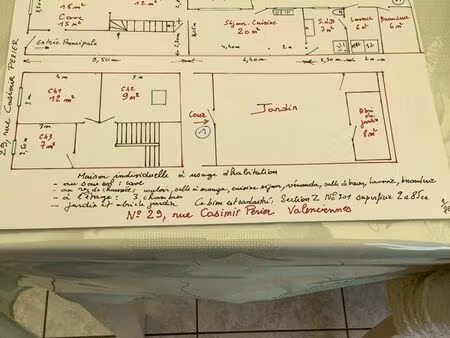 15 m²
Cave
15 m²
12 m²
Séjour. Cuisine
20 m²
SdB
7 m²
Laverie
6 m²
Buanderie
6 m²
Entrée Principale
4,40
2m
8,50m
6,40m
3,30m
2m
29, rue CASIMIR PERIER
4m
3m
Ch1
12 m²
Ch2
9 m²
3m
Cour
1
Jardin
Abri
de
jardin
8 m²
Ch3
7 m²
Maison individuelle à usage d'habitation
- au sous sol : cave
- au rez de chaussée : salon, salle à manger, cuisine séjour, véranda, salle de bains, laverie, buanderie
- à l'étage : 3 chambres
- jardin et abri de jardin Ce bien est cadastré : Section Z N° 301 superficie 2a85ca
N° 29, rue Casimir Perier Valenciennes